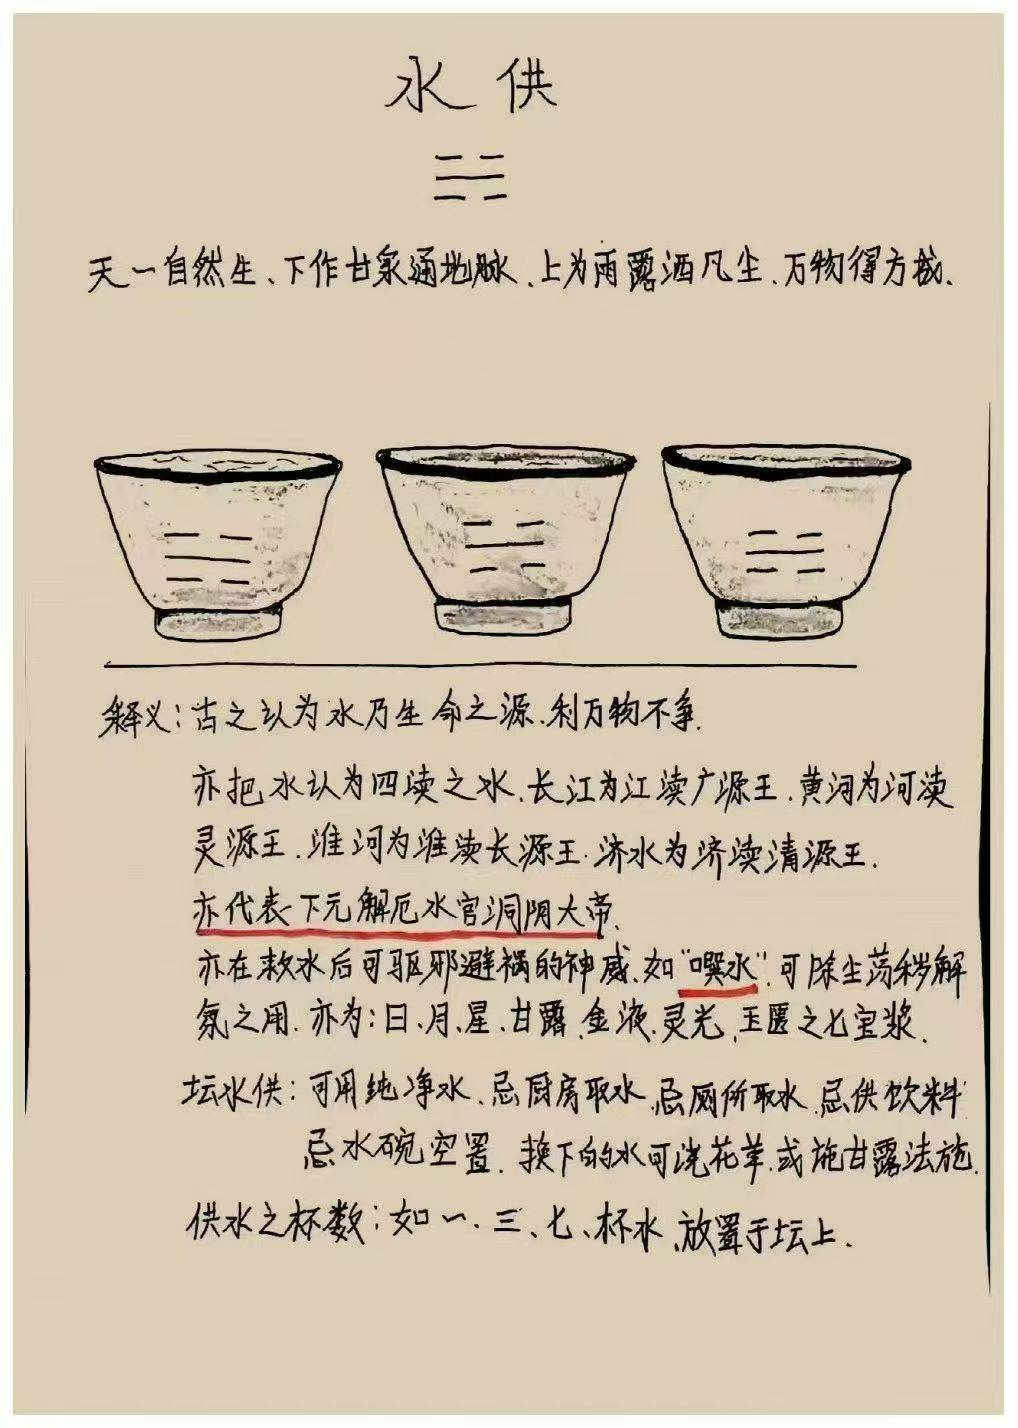 水供
天一自然生、下作甘泉通地脉、上为雨露洒凡尘、万物得方成.
释义：古之认为水乃生命之源、利万物不争.
亦把水认为四渎之水、长江为江渎广源王、黄河为河渎
灵源王、淮河为淮渎长源王、济水为济渎清源王.
亦代表下元解厄水官洞阴大帝.
亦在敕水后可驱邪避祸的神威、如“噀水”可除尘荡秽解
氛之用、亦为：日、月、星、甘露、金液、灵光、玉匮之七宝浆.
坛水供：可用纯净水、忌厨房取水、忌厕所取水、忌供饮料
忌水碗空置、换下的水可浇花草、或施甘露法施.
供水之杯数：如一、三、七、杯水、放置于坛上.